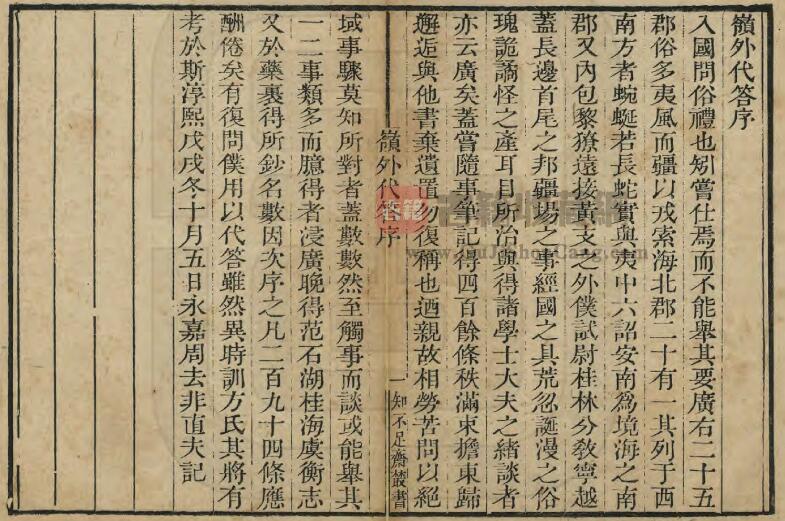 嶺外代答序
入國問俗禮也矧嘗仕焉而不能舉其要廣右二十五
郡俗多夷風而疆以戎索海北郡二十有一其列于西
南方者蜿蜒若長蛇實與夷中六詔安南爲境海之南
郡又內包黎獠遠接黃支之外僕試尉桂林分敎寧越
蓋長邊首尾之邦疆埸之事經國之具荒忽誕漫之俗
瑰詭譎怪之產耳目所治與得諸學士大夫之緒談者
亦云廣矣蓋嘗隨事筆記得四百餘條秩滿束擔東歸
邂逅與他書棄遺置勿復稱也迺親故相勞苦問以絕
嶺外代答序
一
知不足齋叢書
域事驟莫知所對者蓋數數然至觸事而談或能舉其
一二事類多而臆得者浸廣晚得范石湖桂海虞衡志
又於藥裹得所鈔名數因次序之凡二百九十四條應
酬倦矣有復問僕用以代答雖然異時訓方氏其將有
考於斯淳熙戊戌冬十月五日永嘉周去非直夫記